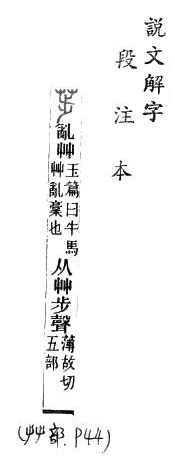 説文解字
段注本
𦯔 亂艸玉篇曰牛馬艸亂稾也从艸步聲薄故切五部
(艸部.P44)